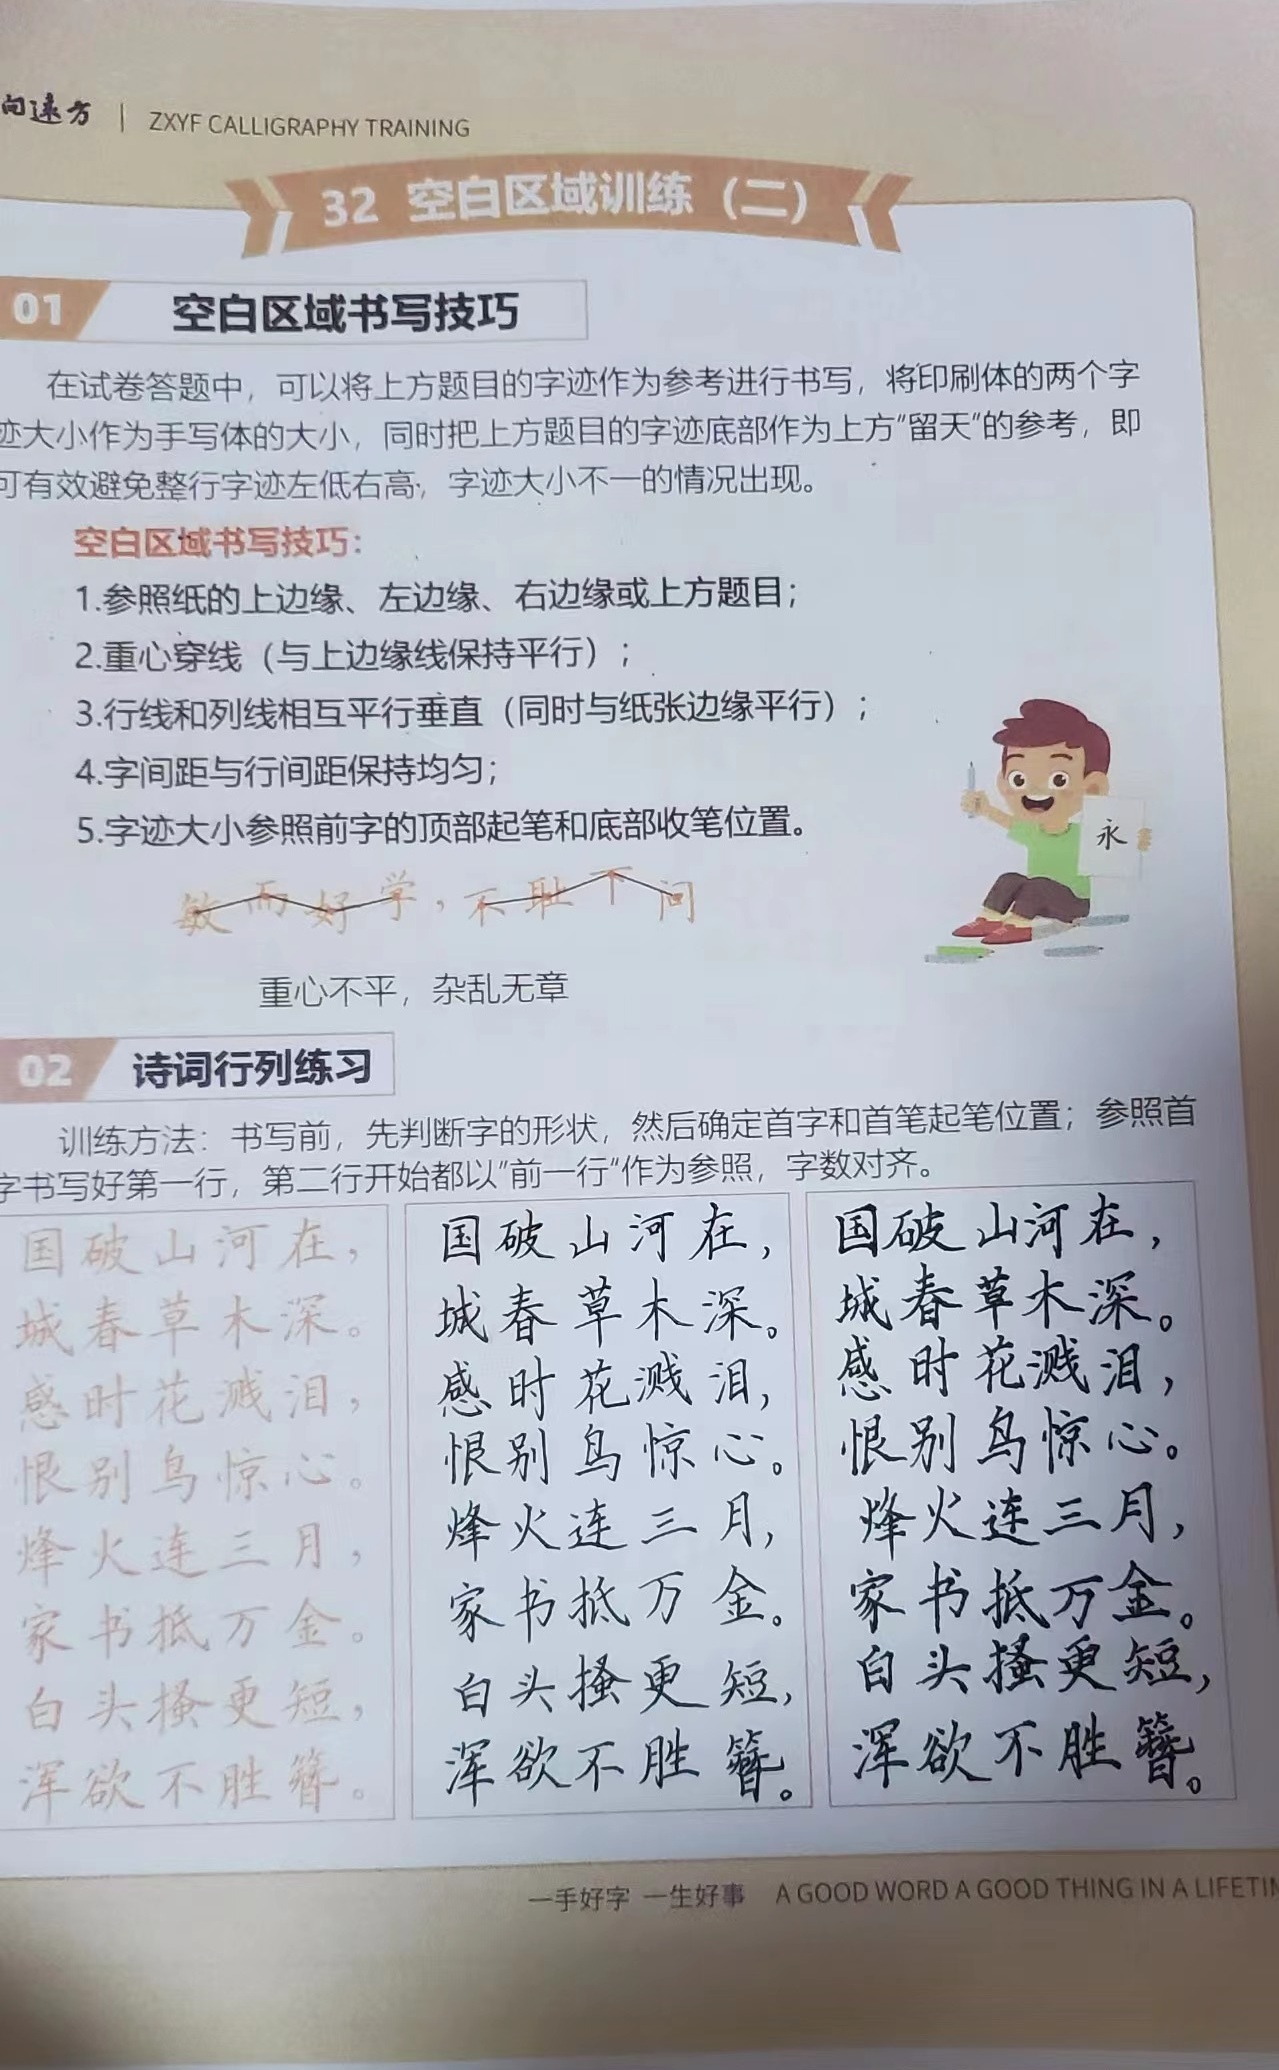 向远方 | ZXYF CALLIGRAPHY TRAINING
32 空白区域训练（二）
01 空白区域书写技巧
在试卷答题中，可以将上方题目的字迹作为参考进行书写，将印刷体的两个字
迹大小作为手写体的大小，同时把上方题目的字迹底部作为上方"留天"的参考，即
可有效避免整行字迹左低右高，字迹大小不一的情况出现。
空白区域书写技巧：
1.参照纸的上边缘、左边缘、右边缘或上方题目；
2.重心穿线（与上边缘线保持平行）；
3.行线和列线相互平行垂直（同时与纸张边缘平行）；
4.字间距与行间距保持均匀；
5.字迹大小参照前字的顶部起笔和底部收笔位置。
永
敏而好学，不耻下问
重心不平，杂乱无章
02 诗词行列练习
训练方法：书写前，先判断字的形状，然后确定首字和首笔起笔位置；参照首
字书写好第一行，第二行开始都以"前一行"作为参照，字数对齐。
国破山河在，
城春草木深。
感时花溅泪，
恨别鸟惊心。
烽火连三月，
家书抵万金。
白头搔更短，
浑欲不胜簪。
国破山河在，
城春草木深。
感时花溅泪，
恨别鸟惊心。
烽火连三月，
家书抵万金。
白头搔更短，
浑欲不胜簪。
国破山河在，
城春草木深。
感时花溅泪，
恨别鸟惊心。
烽火连三月，
家书抵万金。
白头搔更短，
浑欲不胜簪。
一手好字 一生好事 A GOOD WORD A GOOD THING IN A LIFETIM